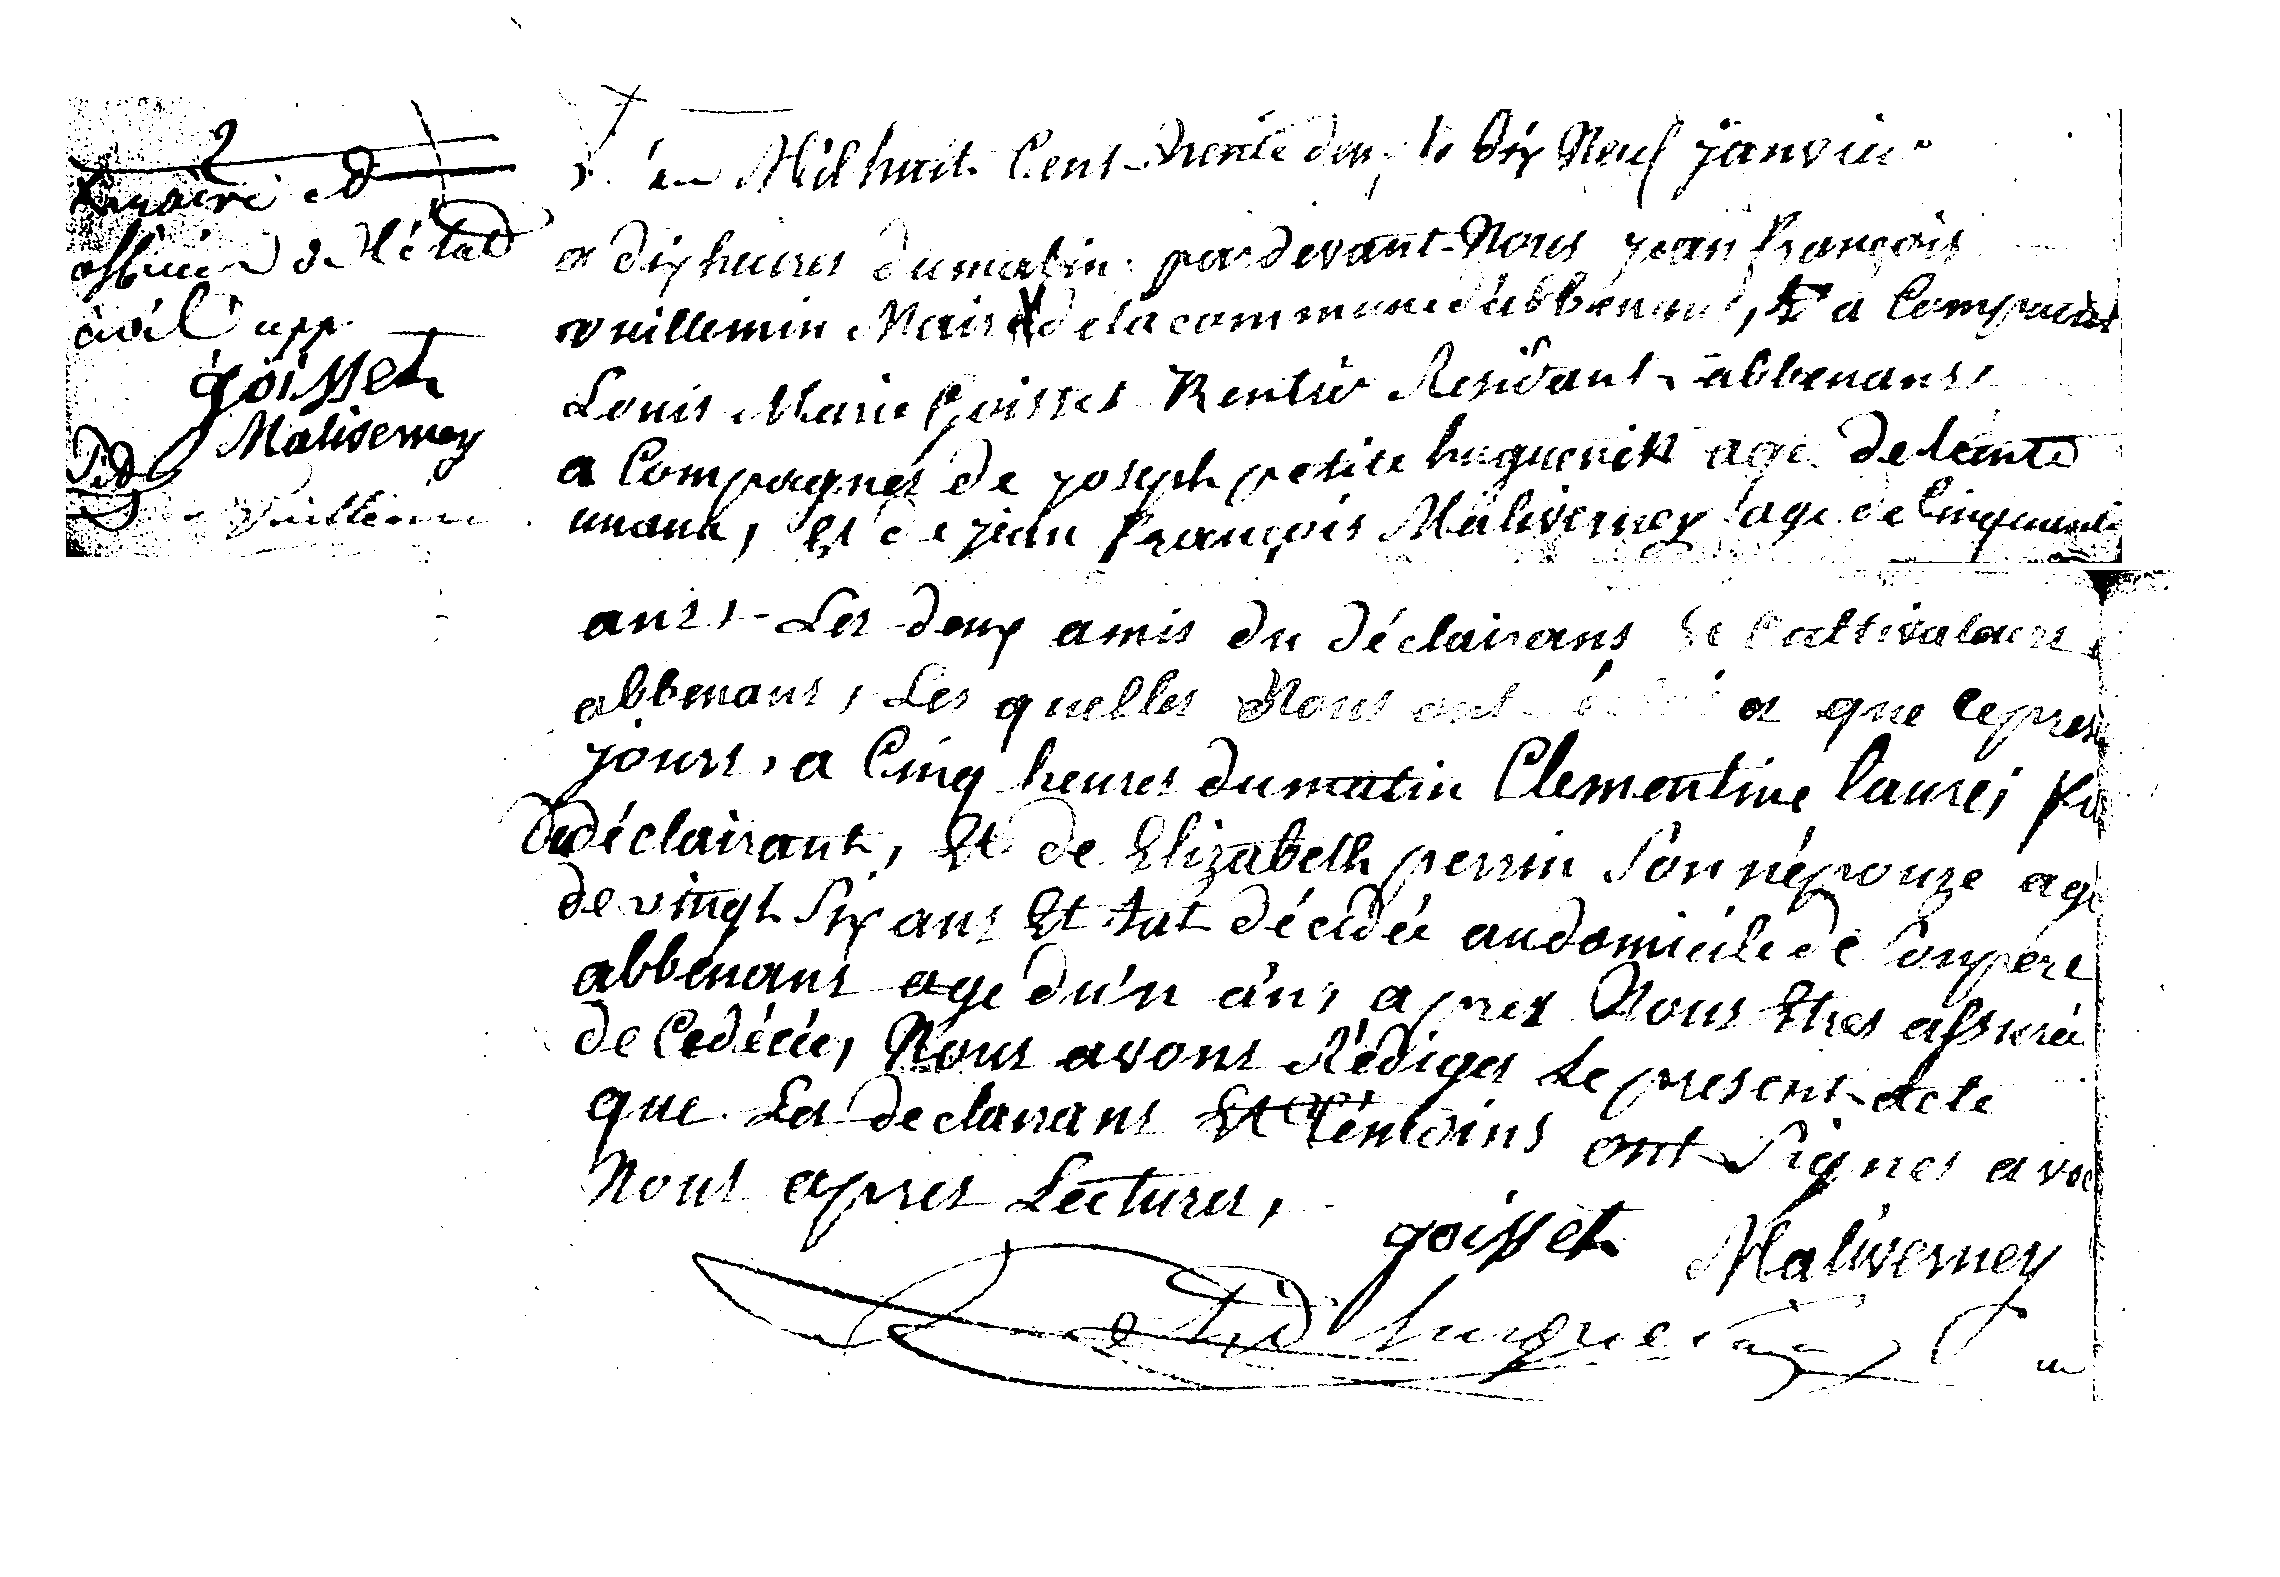 2
maire et
officier de l'état
civil app
goisset
Maliverney
vuillemin
L'an Mil huit Cent trente deux le dix Neuf janvier
a dix heures du matin pardevant Nous jean françois
vuillemin Maire de la commune d'abbenans, a Comparu
Louis Marie Goisset Rentier Residant abbenans,
a Compagnés de joseph petite huguenin age de trente
unans, Et de jean françois Maliverney age de Cinquante
ans, Les deux amis du déclairans Et Cultivateurs
abbenans, Les quelles Nous ont que le pres
jours, a Cinq heures du matin Clementine laure,
du déclairant, Et de Elizabeth perrin son népouze age
de vingt six ans Et tat décédée au domicile de son pere
abbénans age du'n ans, a pres Nous Etres assuré
de Cedécée, Nous avons Rédiges Le present acte
que Les declairans Et Témoins ont Signes avec
Nous apres Lectures,
goisset Maliverney